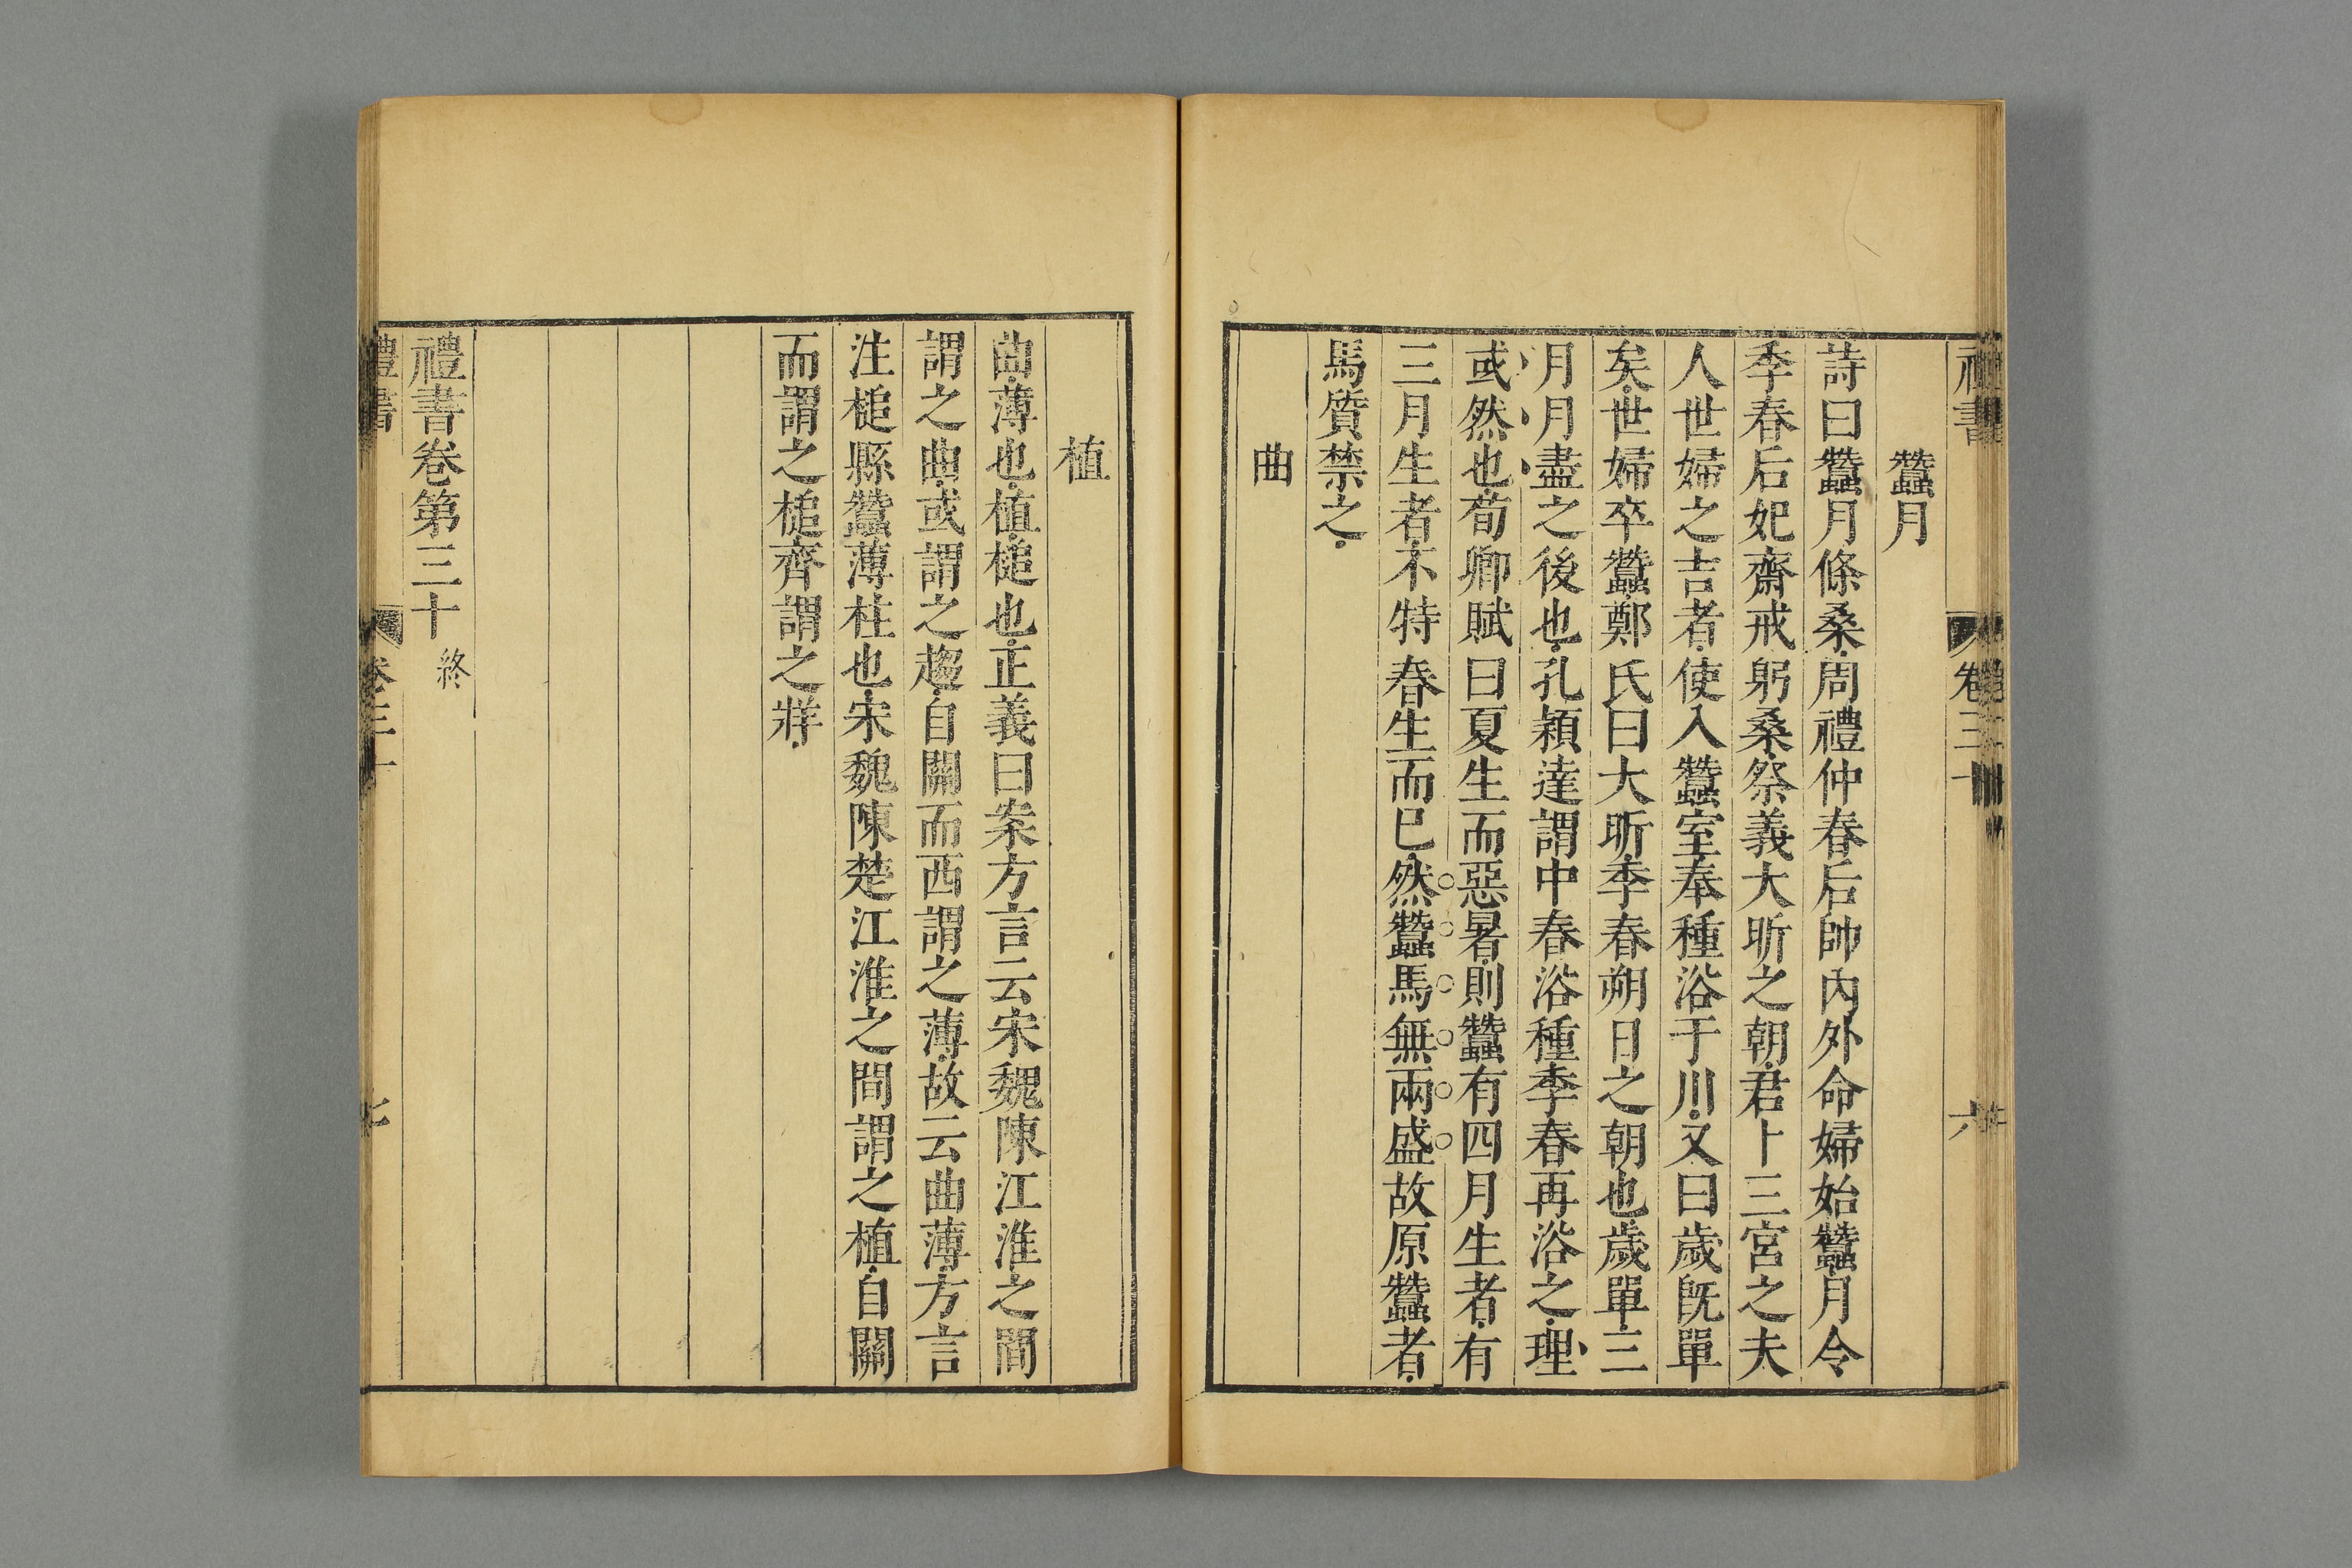 蠶月
詩曰蠶月條桑周禮仲春后帥內外命婦始蠶月令
季春后妃齋戒躬桑祭義大昕之朝君卜三宮之夫
人世婦之吉者使入蠶室奉種浴于川又曰歲旣單
矣世婦卒蠶鄭氏曰大昕季春朔日之朝也歲單三
月月盡之後也孔穎達謂中春浴種季春再浴之理
或然也荀卿賦曰夏生而惡暑則蠶有四月生者有
三月生者不特春生而已然蠶馬無兩盛故原蠶者
馬質禁之
曲
植
曲薄也植槌也正義曰案方言云宋魏陳江淮之間
謂之曲或謂之麴自關而西謂之薄故云曲薄方言
注槌縣蠶薄柱也宋魏陳楚江淮之間謂之植自關
而謂之槌齊謂之牂
禮書卷第三十 終
禮書 卷三十 六
禮書 卷三十 七